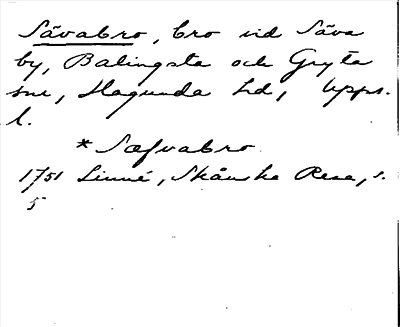 Sävabro, bro vid Säva
by, Balingsta och Gryta
snr, Hagunda hd, Upps.
l.
* Sæfvabro
1751 Linné, Skånska Resa, s.
5